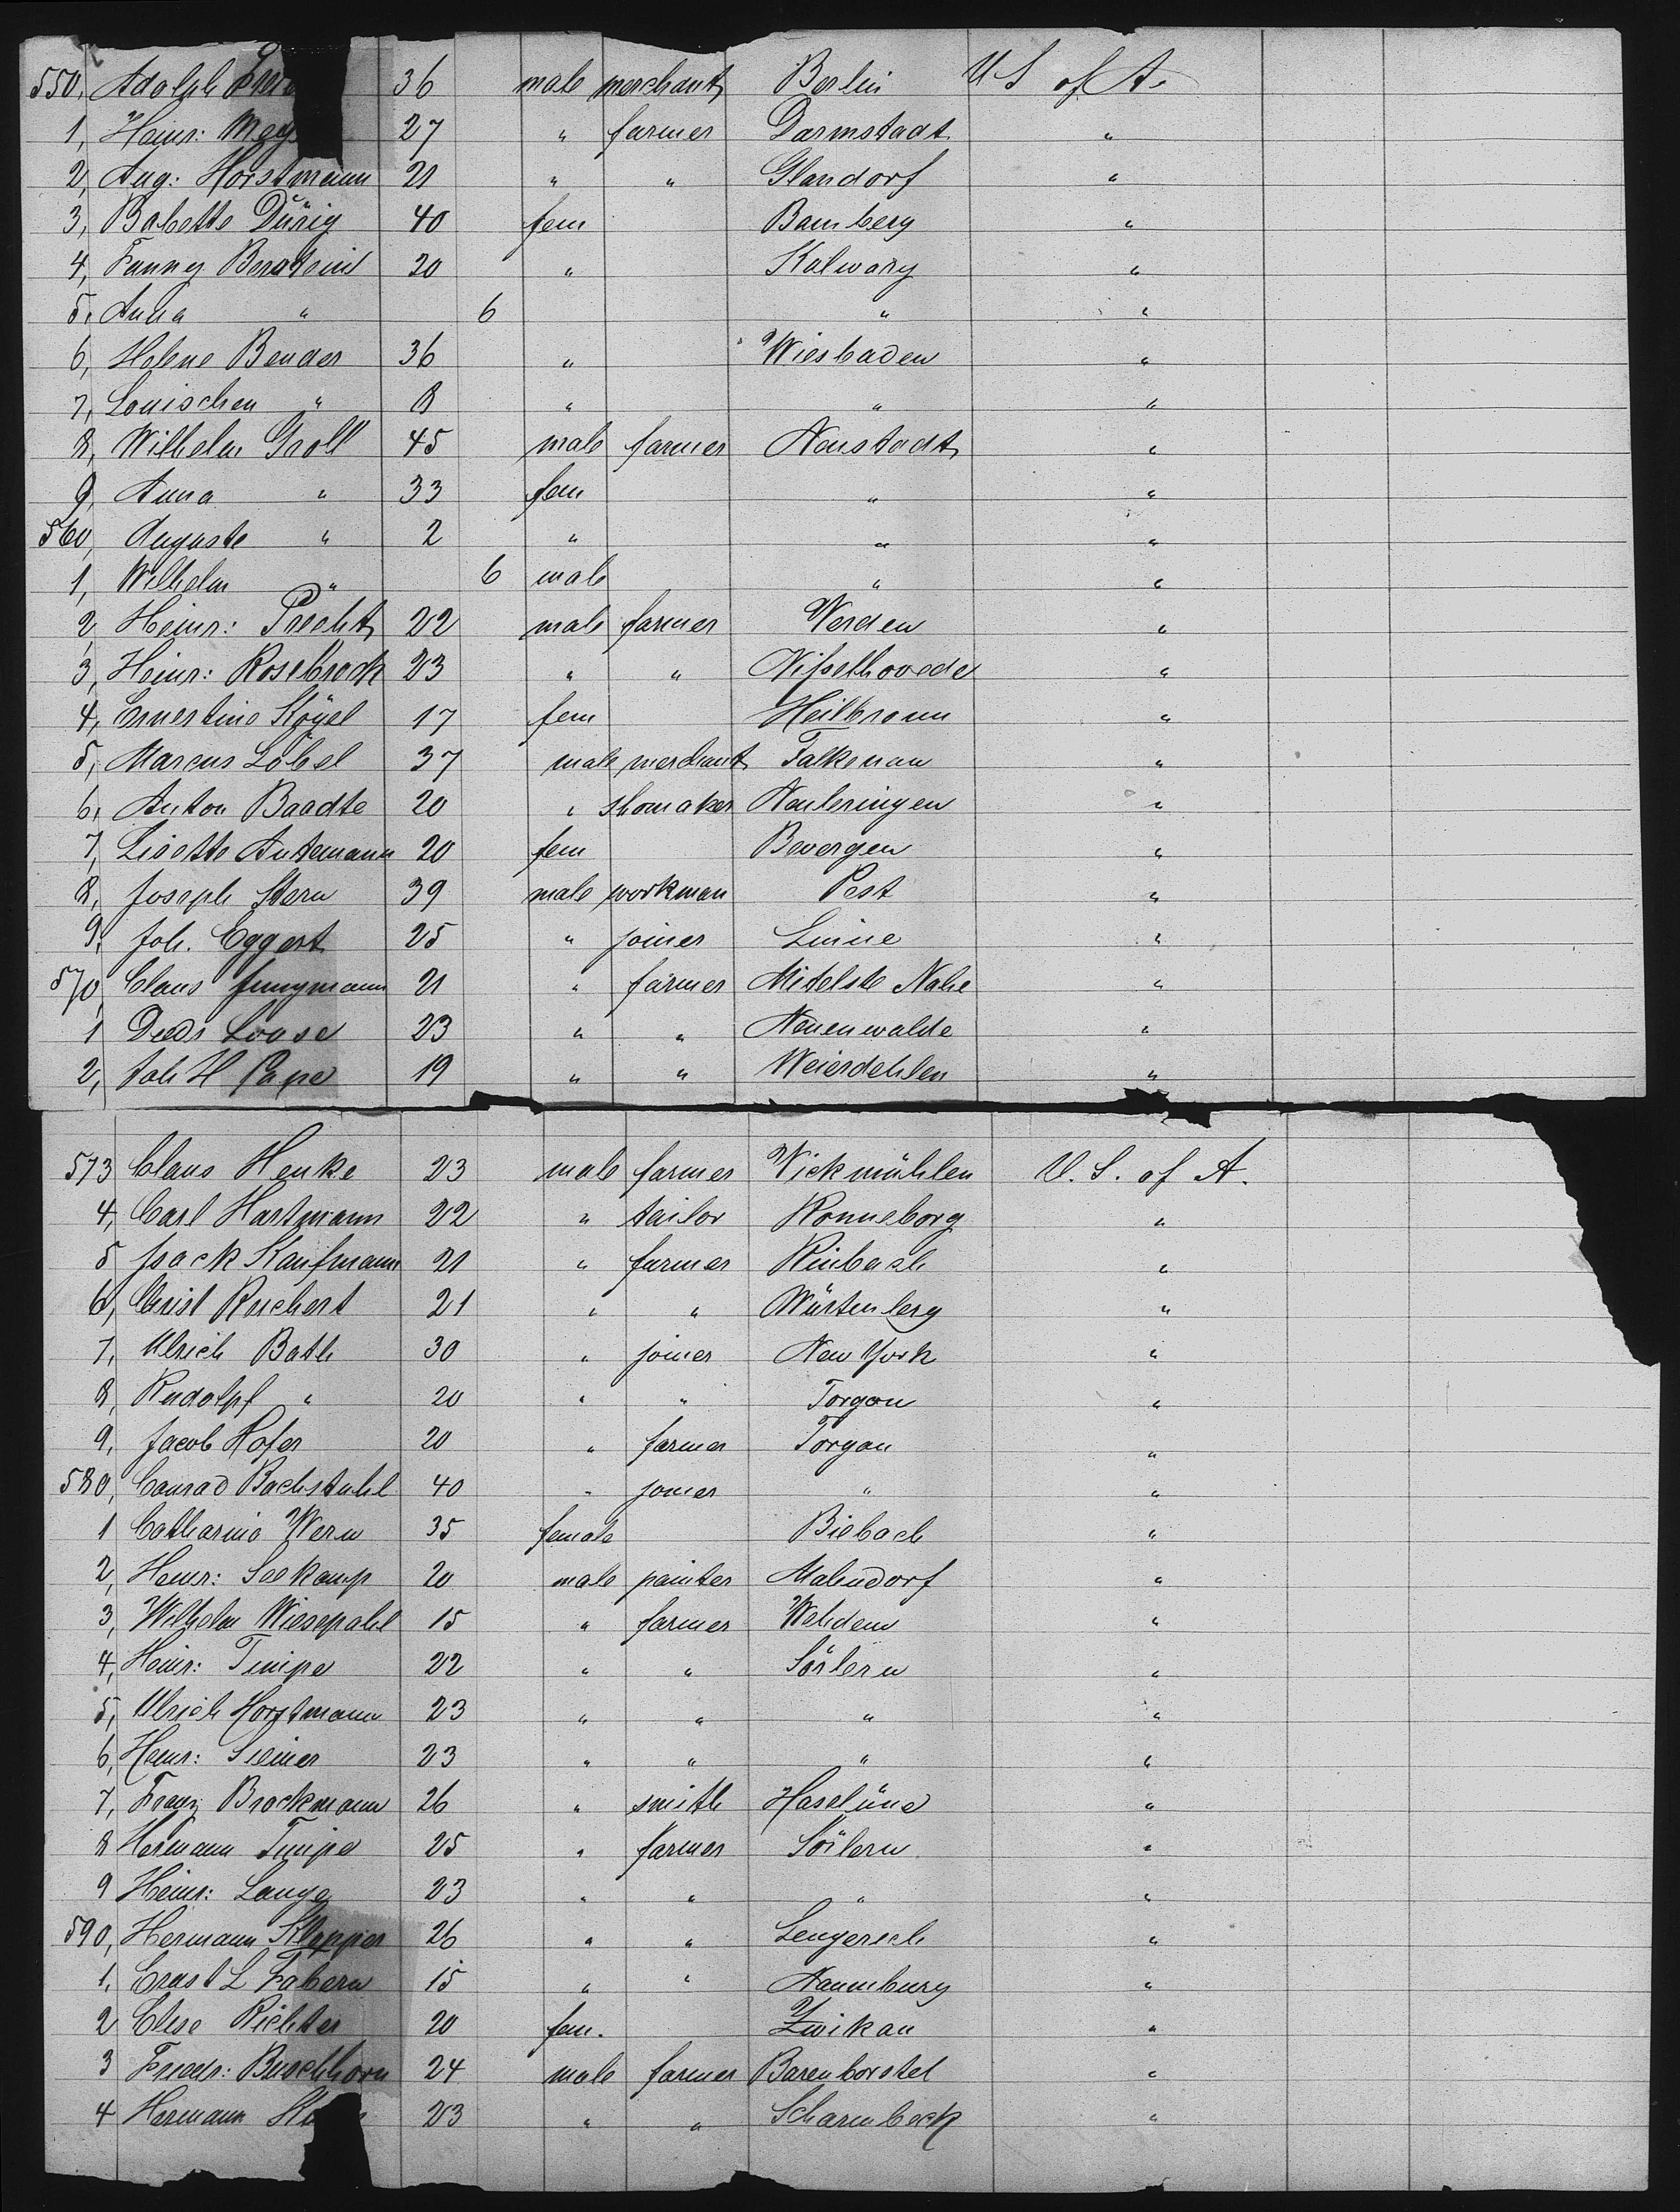 550, Adolph 36 male merchant Berlin U S of A.
1, Heinr: 27 " farmer Darmstadt "
2, Aug: Horstmann 21 " " Glandorf "
3, Babette Dürig 40 fem Bamberg "
4, Fanny Bernstein 20 " Kalwary "
5, Anna " 6 " "
6, Helene Bender 36 " Wiesbaden "
7, Louischen " 8 " " "
8, Wilhelm Groll 45 male farmer Neustadt "
9, Anna " 33 fem " "
560, Auguste " 2 " " "
1, Wilhelm " 6 male " "
2, Heinr: Precht 22 male farmer Verden "
3, Heinr: Rosebrock 23 " " Vißelhovede "
4, Ernestine Kögel 17 fem Heilbronn "
5, Marcus Löbel 37 male merchant Falkenau "
6, Anton Baadte 20 " shomaker Neuleringen "
7, Lisette Antemann 20 fem Bevergen "
8, Joseph Stern 39 male workman Pest "
9, Joh. Eggert 25 " joiner Linne "
570, Claus Jungmann 21 " farmer Mittelste Nahe "
1 Diedr Loose 23 " " Neuenwalde "
2, Joh H Pape 19 " " Weierdehlen "
573 Claus Henke 23 male farmer Wiekmühlen U. S. of A.
4, Carl Hartmann 22 " tailor Ronneborg "
5 Isack Kaufmann 21 " farmer Rimbach "
6, Christ Ruchert 21 " " Würtenberg "
7, Ulrich Bath 30 " joiner New York "
8, Rudolpf " 20 " " Torgau "
9, Jacob Hofer 20 " farmer Torgau "
580, Conrad Bachstuhl 40 " joiner " "
1 Catharina Wern 35 female Biebach "
2, Heinr: Seekamp 20 male painter Malendorf "
3, Wilhelm Wiesepahl 15 " farmer Wehdem "
4, Heinr: Timpe 22 " " Sörlern "
5, Ulrich Horstmann 23 " " " "
6, Heinr: Siemer 23 " " " "
7, Franz Brockmann 26 " smith Haselüne "
8 Hermann Timpe 25 " farmer Sörlern "
9 Heinr: Lange 23 " " " "
590, Hermann Klepper 26 " " Lengerich "
1, Ernst L Fabern 15 " " Naumburg "
2 Elise Richter 20 fem. Zwikau "
3 Friedr: Buschhorn 24 male farmer Barenborstel "
4 Hermann 23 " " Scharmbeck "